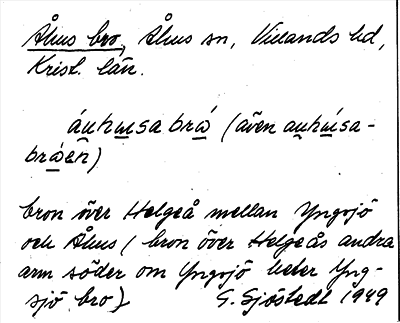 Åhus bro, Åhus sn, Villands hd,
Krist. län.
áu̲hu̲sa bra̲ (även au̲hú̲sa-
bra̲en)
bron över Helgeå mellan Yngsjö
och Åhus (bron över Helgeås andra
arm söder om Yngsjö heter Yng-
sjö bro).
G. Sjöstedt 1949